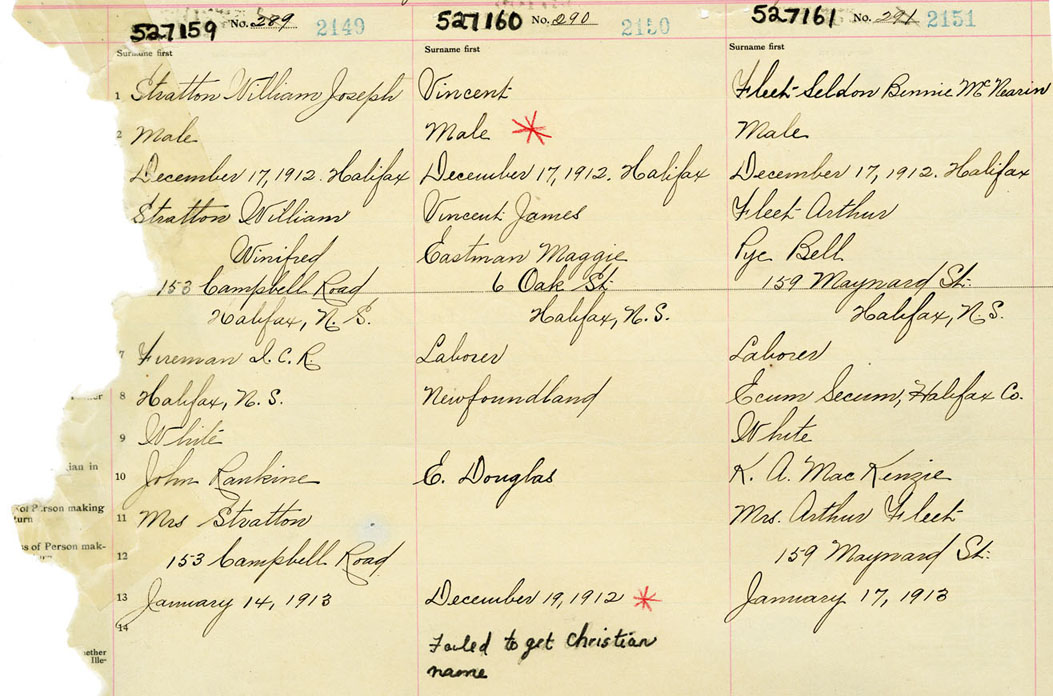 527159 No. 289 2149
Surname first
1 Stratton William Joseph
2 Male
December 17, 1912. Halifax
Stratton William
Winifred
153 Campbell Road
Halifax, N.S.
7 Fireman I.C.R.
8 Halifax, N.S.
9 White
10 John Rankine
11 Mrs Stratton
12 153 Campbell Road
13 January 14, 1913
14
ian in
of Person making
turn
ss of Person mak-
ether
Ille-
527160 No. 290 2150
Surname first
Vincent
Male *
December 17, 1912. Halifax
Vincent James
Eastman Maggie
6 Oak St.
Halifax, N.S.
Laborer
Newfoundland
E. Douglas
December 19, 1912 *
Failed to get Christian
name
527161 No. 291 2151
Surname first
Fleet Seldon Bennie McNearin
Male
December 17, 1912. Halifax
Fleet Arthur
Pye Bell
159 Maynard St.
Halifax, N.S.
Laborer
Ecum Secum, Halifax Co.
White
K. A. MacKenzie
Mrs. Arthur Fleet
159 Maynard St.
January 17, 1913